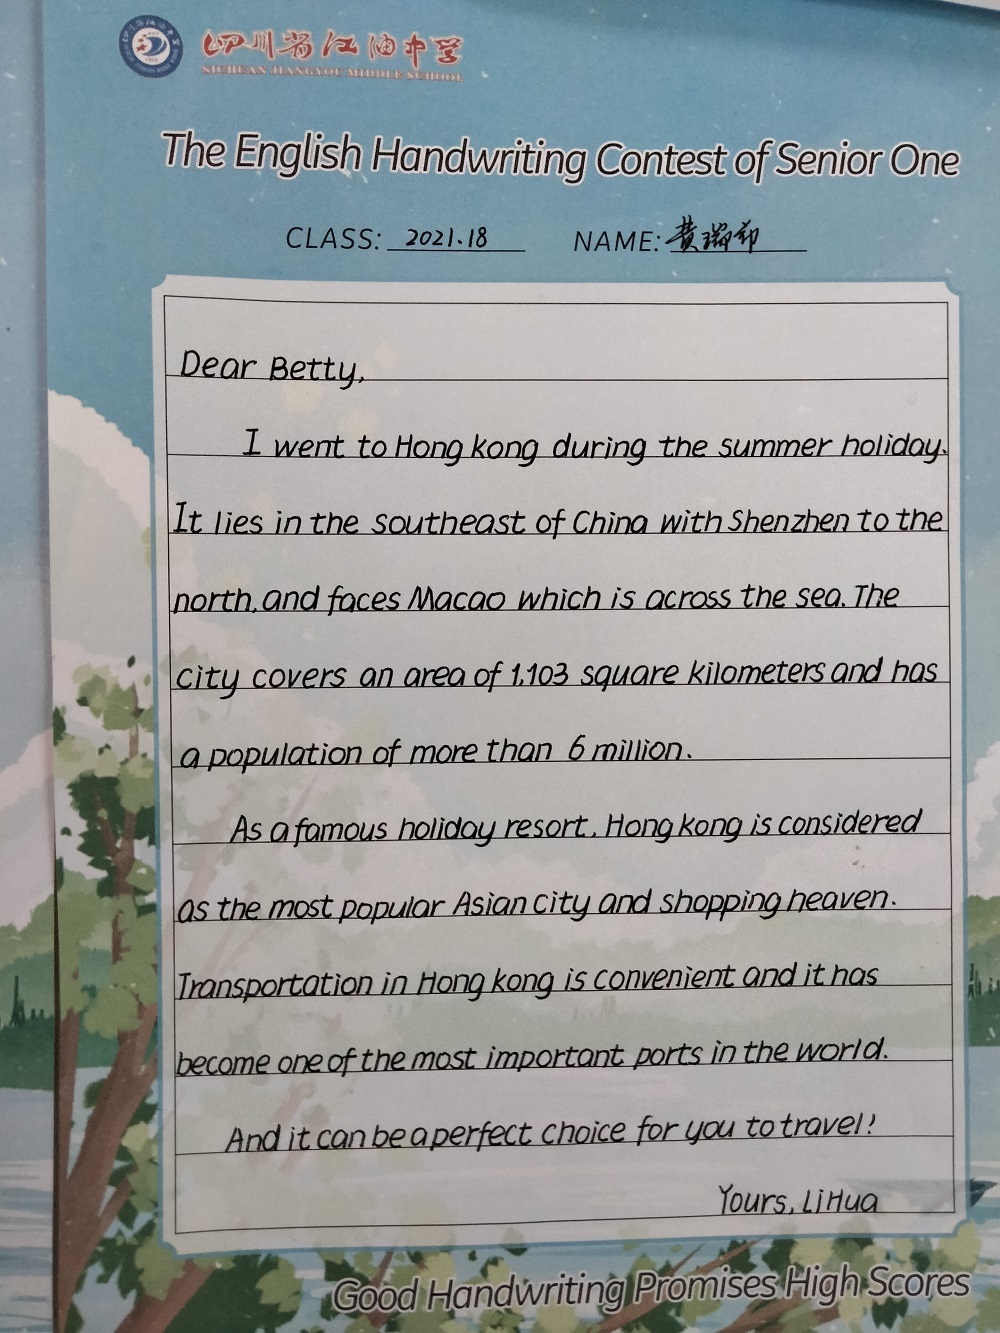 四川省江油中学
SICHUAN JIANGYOU MIDDLE SCHOOL
The English Handwriting Contest of Senior One
CLASS: 2021.18 NAME: 黄瑞
Dear Betty,
I went to Hong kong during the summer holiday.
It lies in the southeast of China with Shenzhen to the
north, and faces Macao which is across the sea. The
city covers an area of 1,103 square kilometers and has
a population of more than 6 million.
As a famous holiday resort, Hong kong is considered
as the most popular Asian city and shopping heaven.
Transportation in Hong kong is convenient and it has
become one of the most important ports in the world.
And it can be a perfect choice for you to travel!
Yours, Li Hua
Good Handwriting Promises High Scores